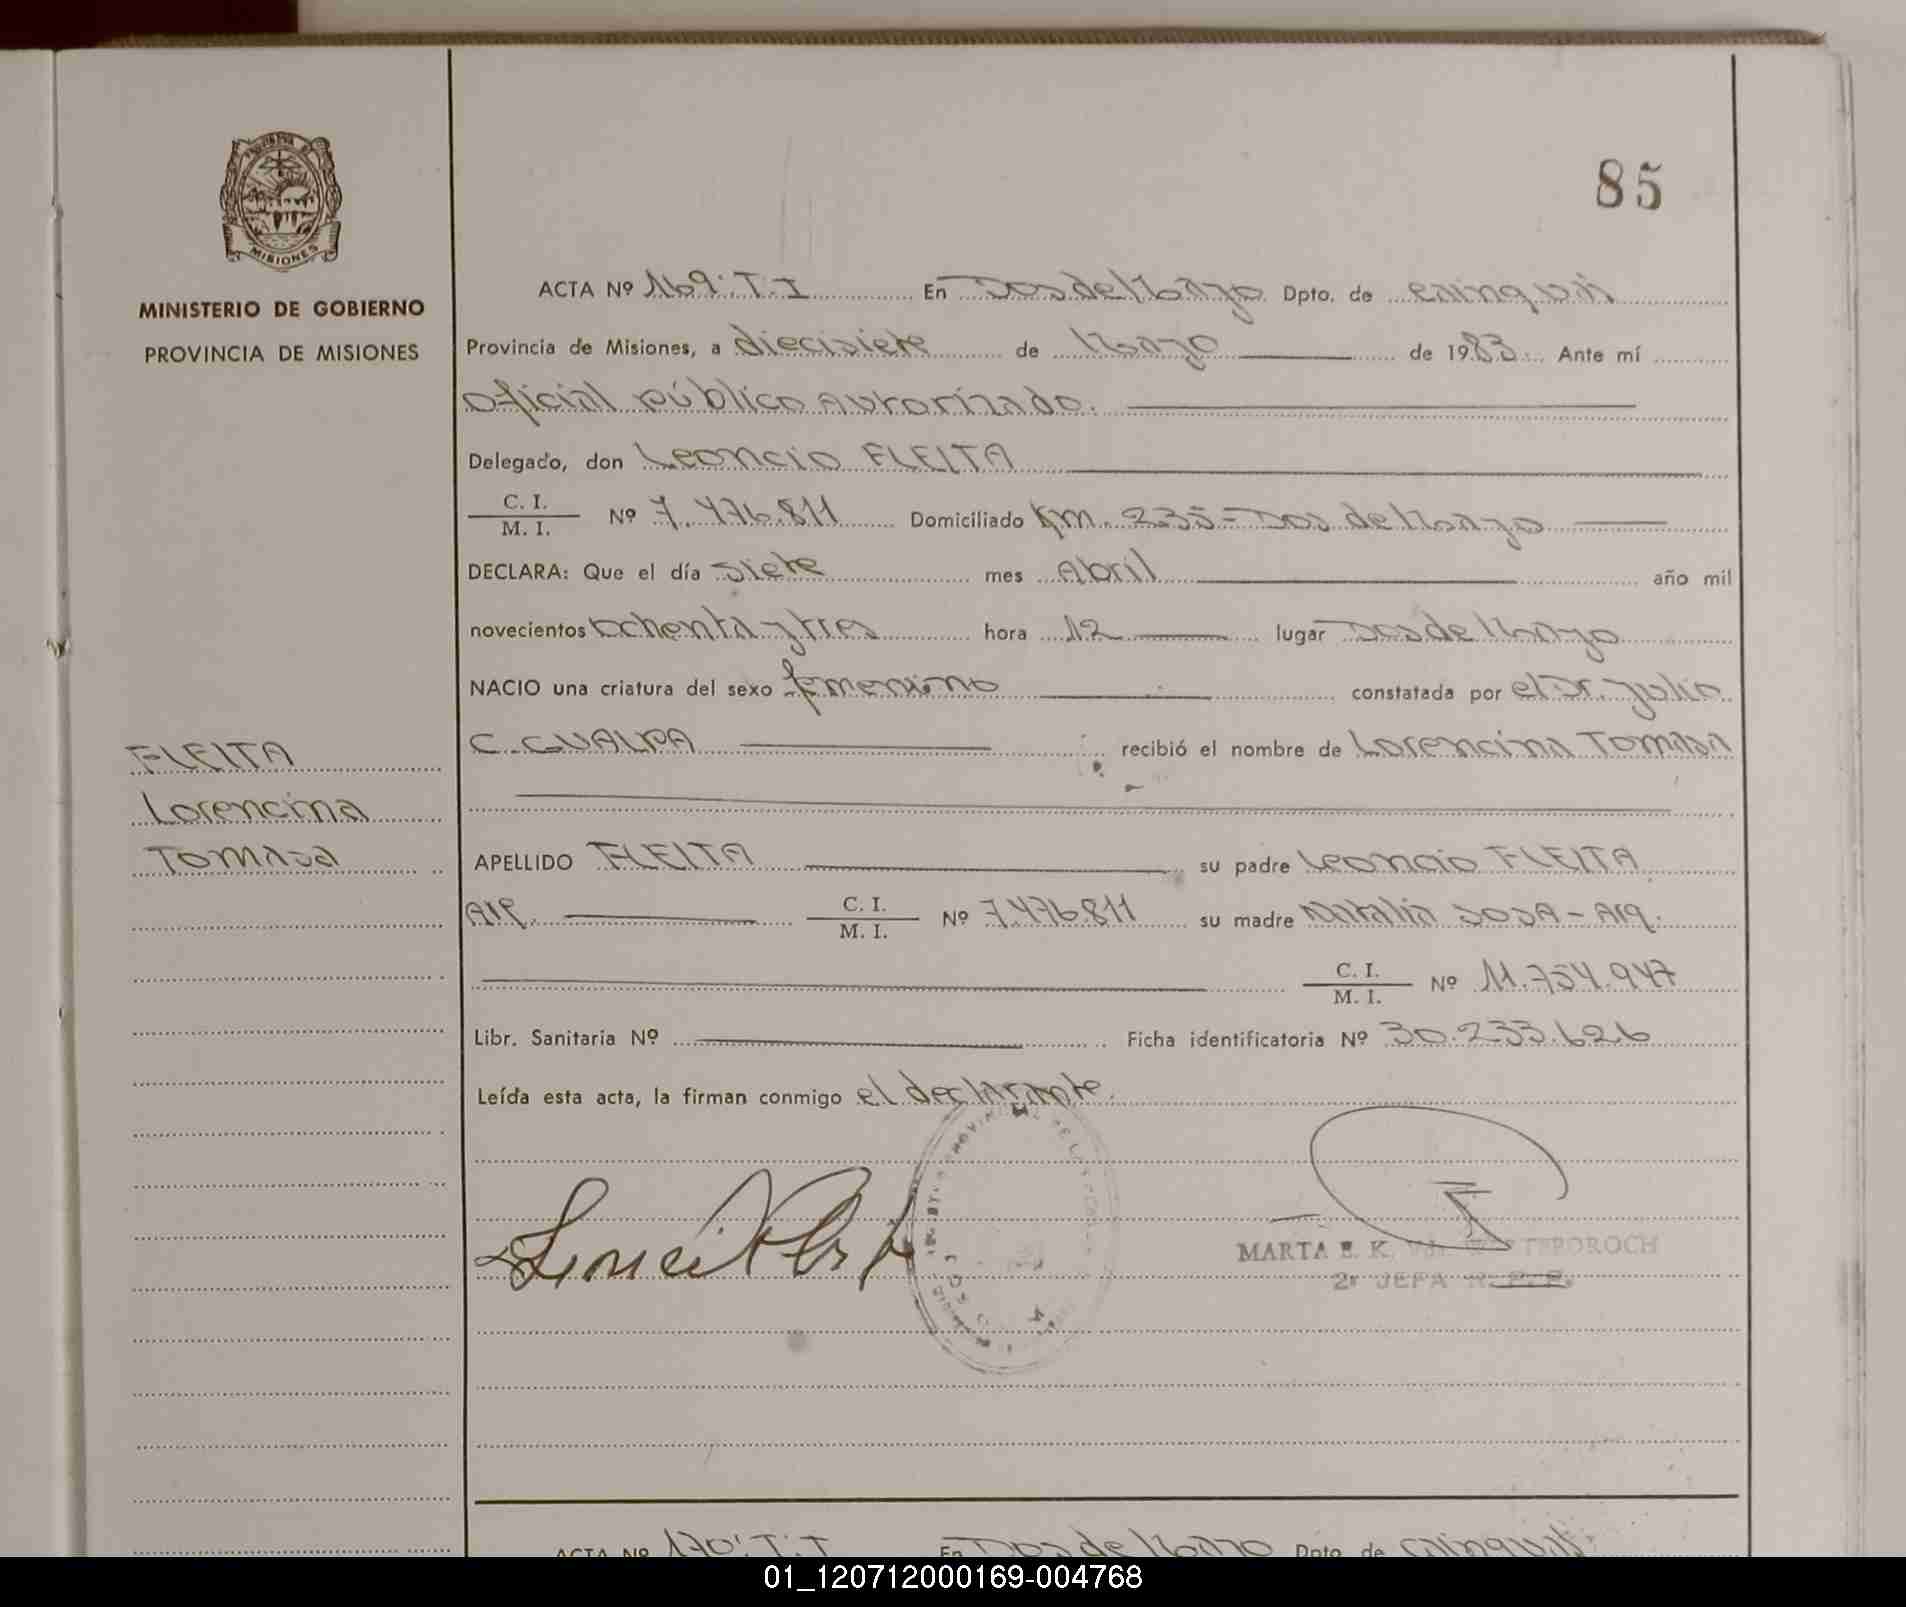 85
MISIONES
MINISTERIO DE GOBIERNO
PROVINCIA DE MISIONES
FLEITA
Lorencina
Tomasa
ACTA Nº 169:T.I En Dos de Mayo Dpto. de Cainguás
Provincia de Misiones, a diecisiete de Mayo de 1983 Ante mí
Oficial público autorizado.
Delegado, don Leoncio FLEITA
C. I.
M. I. Nº 7.476.811 Domiciliado Km. 235-Dos de Mayo
DECLARA: Que el día Siete mes Abril año mil
novecientos Ochenta y tres hora 12 lugar Dos de Mayo
NACIO una criatura del sexo femenino constatada por el Dr. Julio
C. GUALPA recibió el nombre de Lorencina Tomasa
APELLIDO FLEITA su padre Leoncio FLEITA
C. I.
M. I. Nº 7.476.811 su madre Natalia SOSA - Arg.
C. I.
M. I. Nº 11.754.947
Libr. Sanitaria Nº Ficha identificatoria Nº 30.233.626
Leída esta acta, la firman conmigo el declarante.
MARTA E. K.
2ª JEFA R. P. P.
ACTA Nº 170:T.I En Dos de Mayo Dpto. de Cainguás
01_120712000169-004768